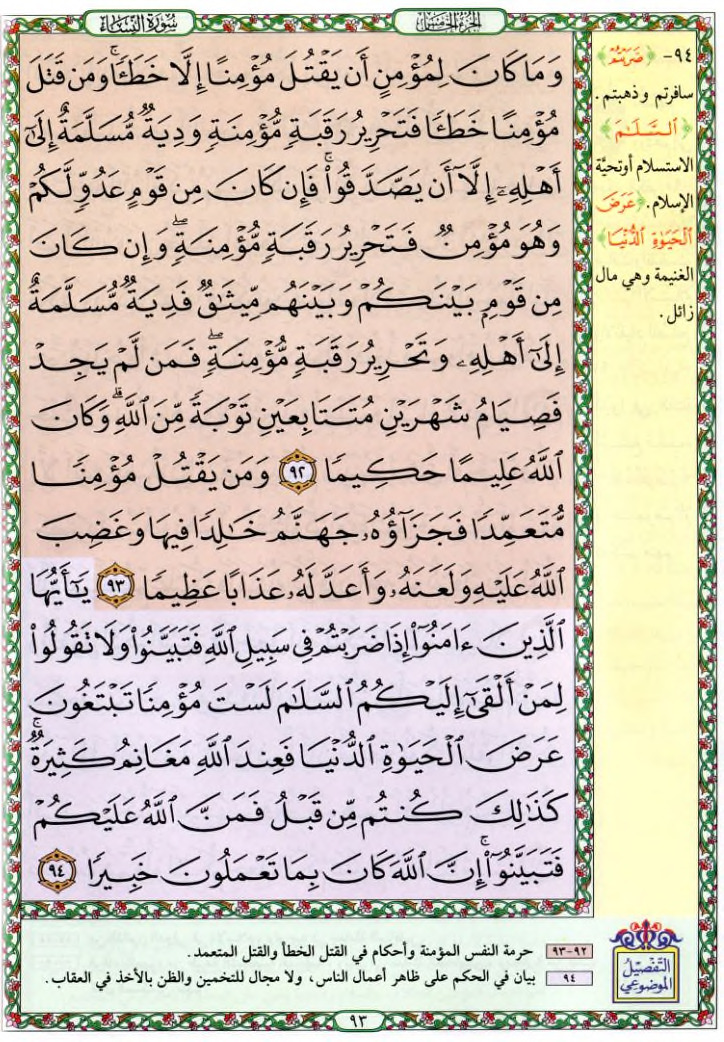 سُورَةُ النِّسَاءِ
الجُزْءُ الخَامِسُ
وَمَا كَانَ لِمُؤْمِنٍ أَن يَقْتُلَ مُؤْمِنًا إِلَّا خَطَـًٔا ۚ وَمَن قَتَلَ
مُؤْمِنًا خَطَـًٔا فَتَحْرِيرُ رَقَبَةٍ مُّؤْمِنَةٍ وَدِيَةٌ مُّسَلَّمَةٌ إِلَىٰٓ
أَهْلِهِۦٓ إِلَّآ أَن يَصَّدَّقُوا۟ ۚ فَإِن كَانَ مِن قَوْمٍ عَدُوٍّ لَّكُمْ
وَهُوَ مُؤْمِنٌ فَتَحْرِيرُ رَقَبَةٍ مُّؤْمِنَةٍ ۖ وَإِن كَانَ
مِن قَوْمٍۭ بَيْنَكُمْ وَبَيْنَهُم مِّيثَـٰقٌ فَدِيَةٌ مُّسَلَّمَةٌ
إِلَىٰٓ أَهْلِهِۦ وَتَحْرِيرُ رَقَبَةٍ مُّؤْمِنَةٍ ۖ فَمَن لَّمْ يَجِدْ
فَصِيَامُ شَهْرَيْنِ مُتَتَابِعَيْنِ تَوْبَةً مِّنَ ٱللَّهِ ۗ وَكَانَ
ٱللَّهُ عَلِيمًا حَكِيمًا ٩٢ وَمَن يَقْتُلْ مُؤْمِنًا
مُّتَعَمِّدًا فَجَزَآؤُهُۥ جَهَنَّمُ خَـٰلِدًا فِيهَا وَغَضِبَ
ٱللَّهُ عَلَيْهِ وَلَعَنَهُۥ وَأَعَدَّ لَهُۥ عَذَابًا عَظِيمًا ٩٣ يَـٰٓأَيُّهَا
ٱلَّذِينَ ءَامَنُوٓا۟ إِذَا ضَرَبْتُمْ فِى سَبِيلِ ٱللَّهِ فَتَبَيَّنُوا۟ وَلَا تَقُولُوا۟
لِمَنْ أَلْقَىٰٓ إِلَيْكُمُ ٱلسَّلَـٰمَ لَسْتَ مُؤْمِنًا تَبْتَغُونَ
عَرَضَ ٱلْحَيَوٰةِ ٱلدُّنْيَا فَعِندَ ٱللَّهِ مَغَانِمُ كَثِيرَةٌ ۚ
كَذَٰلِكَ كُنتُم مِّن قَبْلُ فَمَنَّ ٱللَّهُ عَلَيْكُمْ
فَتَبَيَّنُوٓا۟ ۚ إِنَّ ٱللَّهَ كَانَ بِمَا تَعْمَلُونَ خَبِيرًا ٩٤
٩٤- ﴿ضَرَبْتُمْ﴾
سافرتم وذهبتم.
﴿ٱلسَّلَـٰمَ﴾
الاستسلام أو تحيَّة
الإسلام. ﴿عَرَضَ
ٱلْحَيَوٰةِ ٱلدُّنْيَا﴾
الغنيمة وهي مال
زائل.
التَّفْصِيلُ
المَوْضُوعِي
٩٢-٩٣ حرمة النفس المؤمنة وأحكام في القتل الخطأ والقتل المتعمد.
٩٤ بيان في الحكم على ظاهر أعمال الناس، ولا مجال للتخمين والظن بالأخذ في العقاب.
٩٣